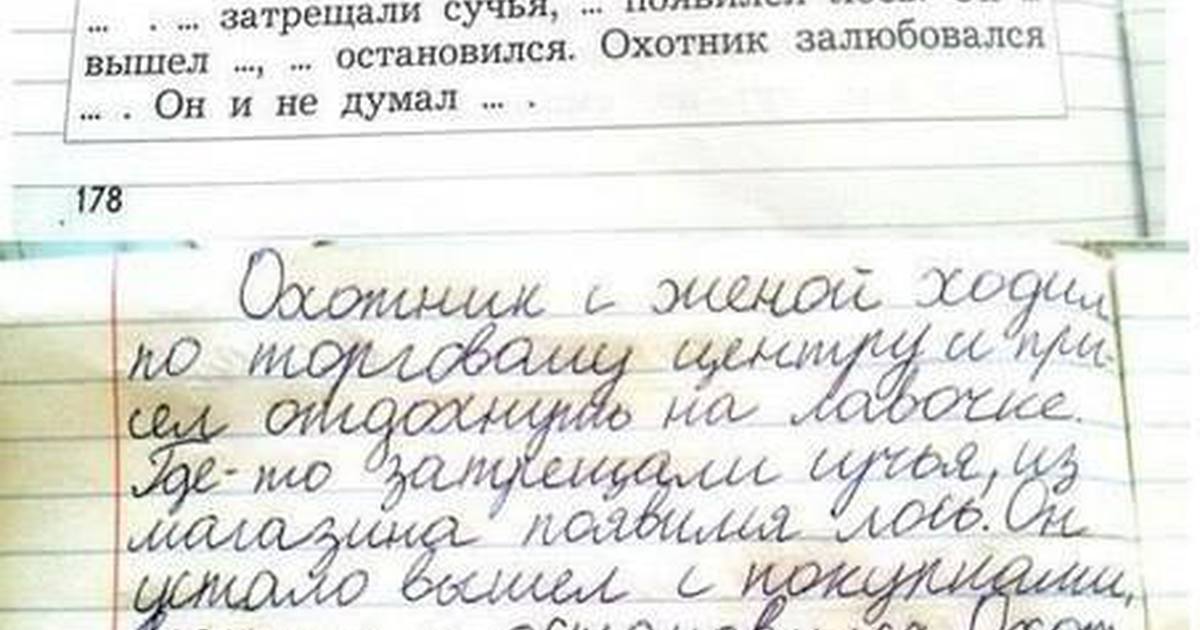 ... . ... затрещали сучья, ... появился лось. Он
вышел ..., ... остановился. Охотник залюбовался
... . Он и не думал ... .
178
Охотник с женой ходил
по торговому центру и при-
сел отдохнуть на лавочке.
Где-то затрещали сучья, из
магазина появился лось. Он
устало вышел с покупками,
остановился. Охот